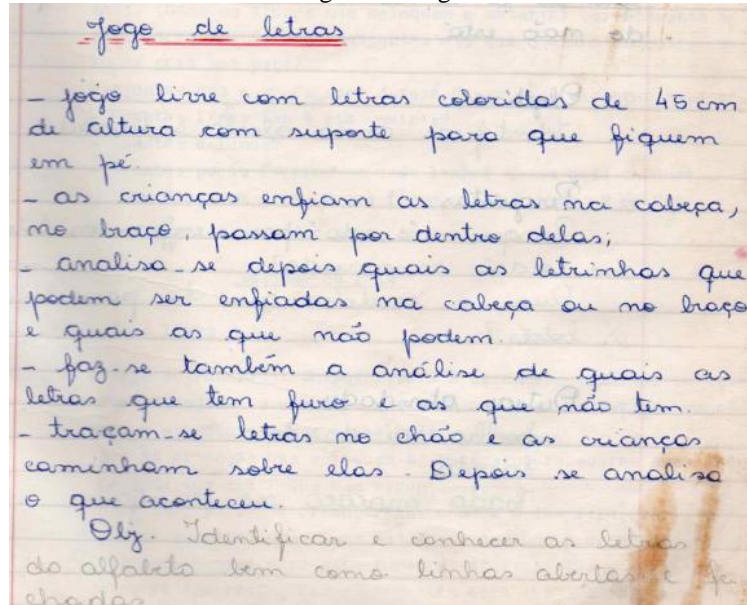 Jogo de letras
- jogo livre com letras coloridas de 45 cm
de altura com suporte para que fiquem
em pé.
- as crianças enfiam as letras na cabeça,
no braço, passam por dentro delas;
- analisa-se depois quais as letrinhas que
podem ser enfiadas na cabeça ou no braço
e quais as que não podem.
- faz-se também a análise de quais as
letras que tem furo e as que não tem.
- traçam-se letras no chão e as crianças
caminham sobre elas. Depois se analisa
o que aconteceu.
Obj. Identificar e conhecer as letras
do alfabeto bem como linhas abertas e fe
chadas